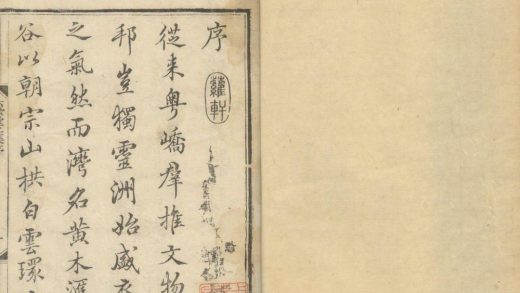 序
蘿軒
從来粤嶠羣推文物
邦豈獨靈洲始盛衣
之氣然而灣名黄木滙
谷以朝宗山拱白雲環